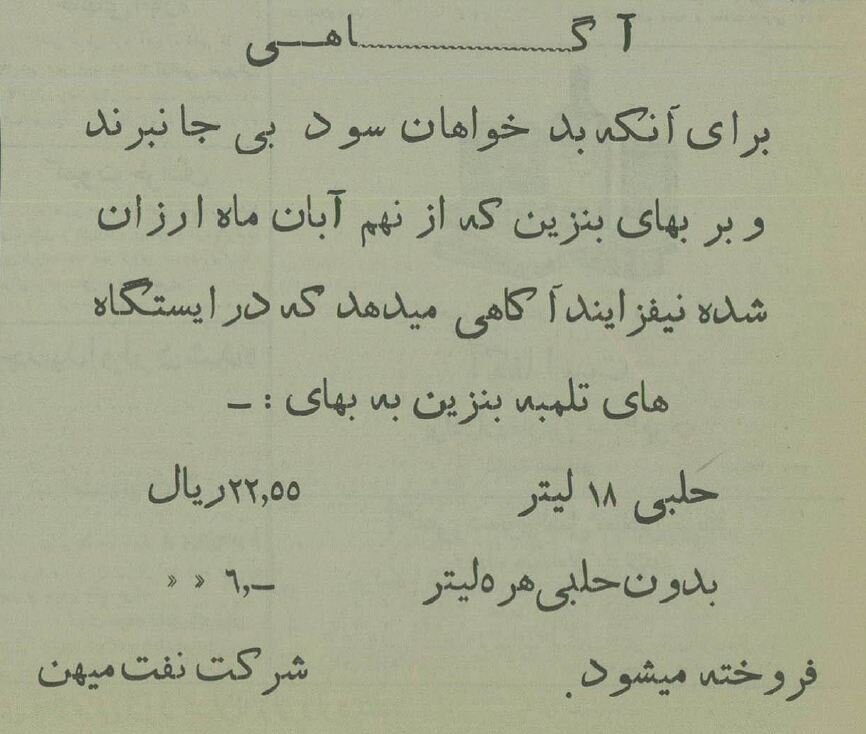 آگـــــاهـــی
برای آنکه بد خواهان سود بی جا نبرند
و بر بهای بنزین که از نهم آبان ماه ارزان
شده نیفزایند آگاهی میدهد که در ایستگاه
های تلمبه بنزین به بهای : ـ
حلبی ۱۸ لیتر ۲۲,۵۵ ریال
بدون حلبی هر ۵ لیتر ۶,ـ » »
فروخته میشود. شرکت نفت میهن